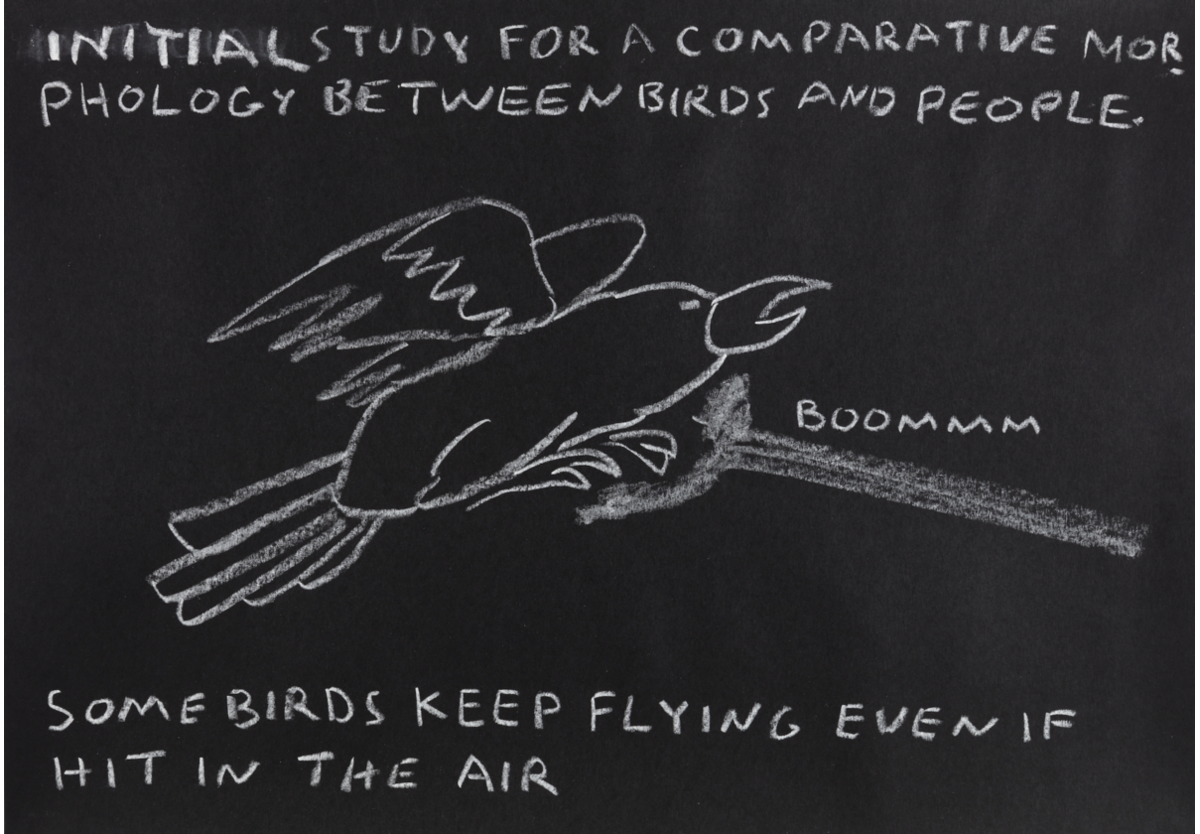 INITIAL STUDY FOR A COMPARATIVE MOR
PHOLOGY BETWEEN BIRDS AND PEOPLE.
BOOMMM
SOME BIRDS KEEP FLYING EVEN IF
HIT IN THE AIR